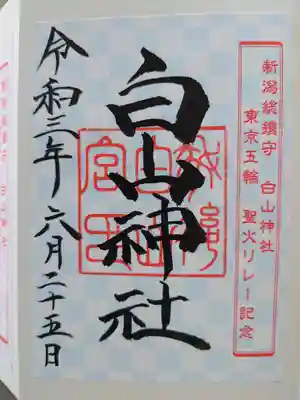 新潟総鎮守 白山神社
東京五輪 聖火リレー記念
白山神社
令和三年六月二十五日